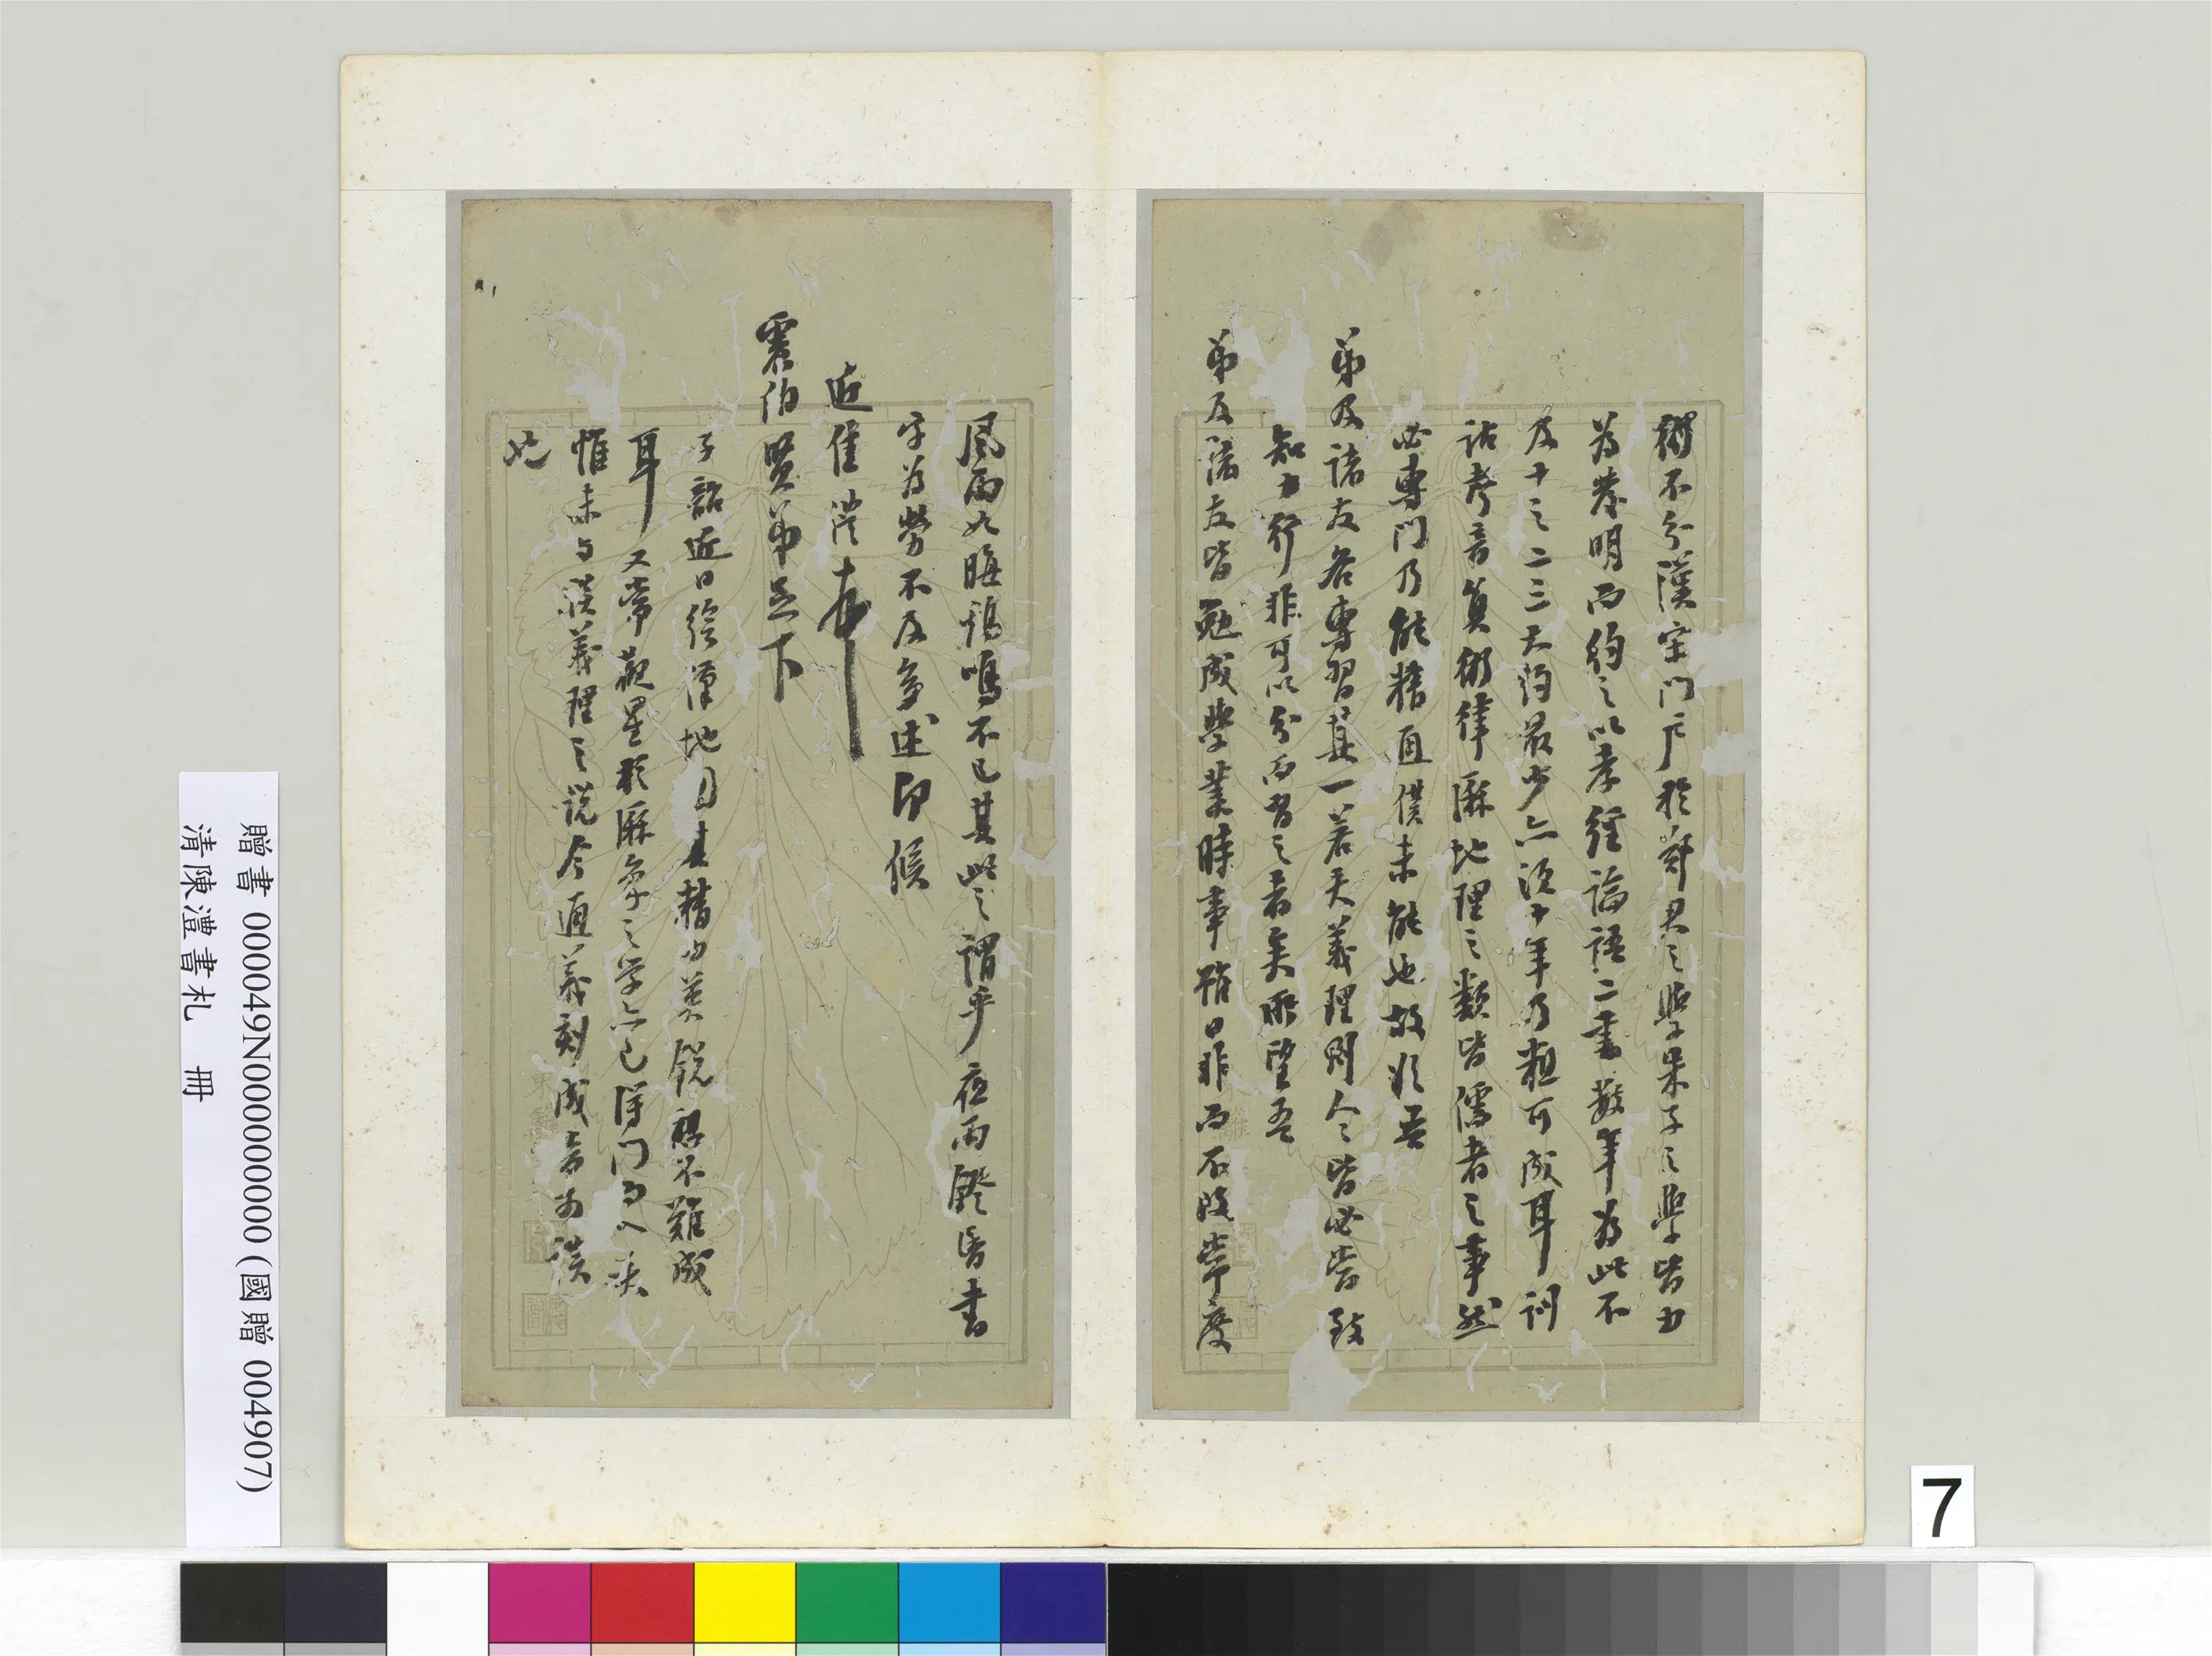 術不分漢宋門戶於鄭君之學朱子之學皆力
為發明而約之以孝經論語二書數年為此不
及十之二三大約最少亦須十年乃粗可成耳訓
詁考音算術律厤地理之類皆儒者之事然
必專門乃能精通僕未能也故欲吾
弟及諸友各專習其一若夫義理則人人皆必當致
知力行非可以分而習之者矣所望吾
弟及諸友皆勉成學業時事雖日非而不改常度
風雨如晦雞鳴不已其此之謂乎夜雨鐙昏書
字為勞不及多述即候
近佳澧頓首
震伯賢弟足下
子韶近日繪漢地圖其精力英銳想不難成
耳又常觀星於厤象之學亦已得門而入矣
惟未與談義理之說今通義刻成當與談
也
贈書 000049N000000000 (國贈 004907)
清陳澧書札 冊
7